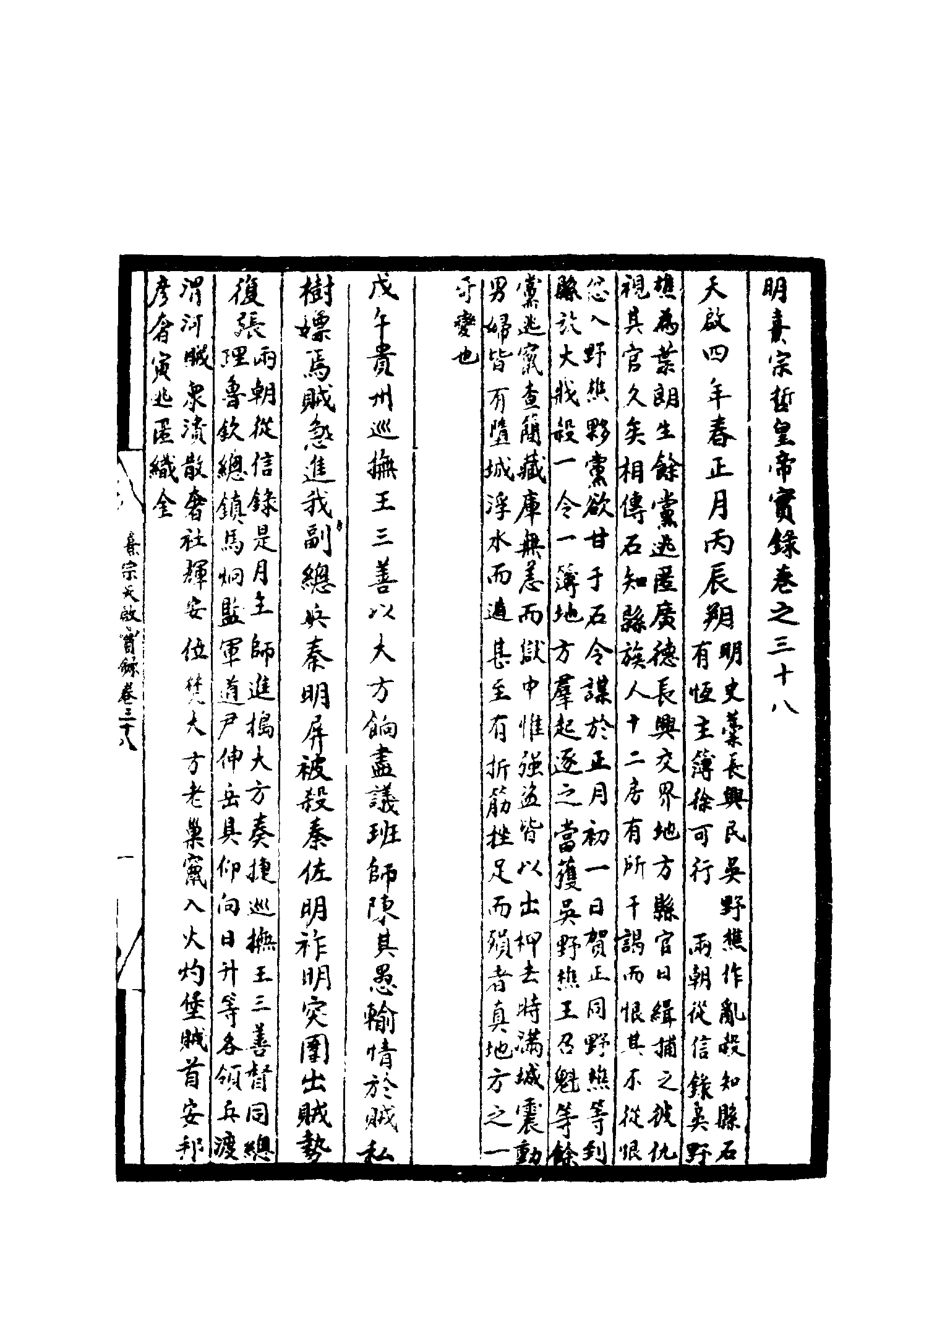 明熹宗哲皇帝實錄卷之三十八
天啟四年春正月丙辰朔
明史藁長興民吳野樵作亂殺知縣石
有恆主簿徐可行　兩朝從信錄吳野
樵為葉朗生餘黨逃匿廣德長興交界地方縣官日緝捕之彼仇
視其官久矣相傳石知縣族人十二房有所干謁而恨其不從恨
入野樵夥黨欲甘于石令謀於正月初一日賀正同野樵等到
縣於大戕殺一令一簿地方羣起逐之當獲吳野樵王召魁等餘
黨逃竄查簡藏庫無恙而獄中惟強盜皆以出柙去時滿城震動
男婦皆有墮城浮水而過甚至有折筋挫足而殞者真地方之一
奇變也
戊午貴州巡撫王三善以大方餉盡議班師陳其愚輸情於賊私
樹嫖焉賊急進我副總兵秦明屏被殺秦佐明祚明突圍出賊勢
復張
兩朝從信錄是月王師進搗大方奏捷巡撫王三善督同總
理魯欽總鎮馬炯監軍道尹伸岳具仰向日升等各領兵渡
渭河賊眾潰散奢社輝安位焚大方老巢竄入火灼堡賊首安邦
彥奢寅逃匿織金
熹宗天啟實錄卷三十八
一